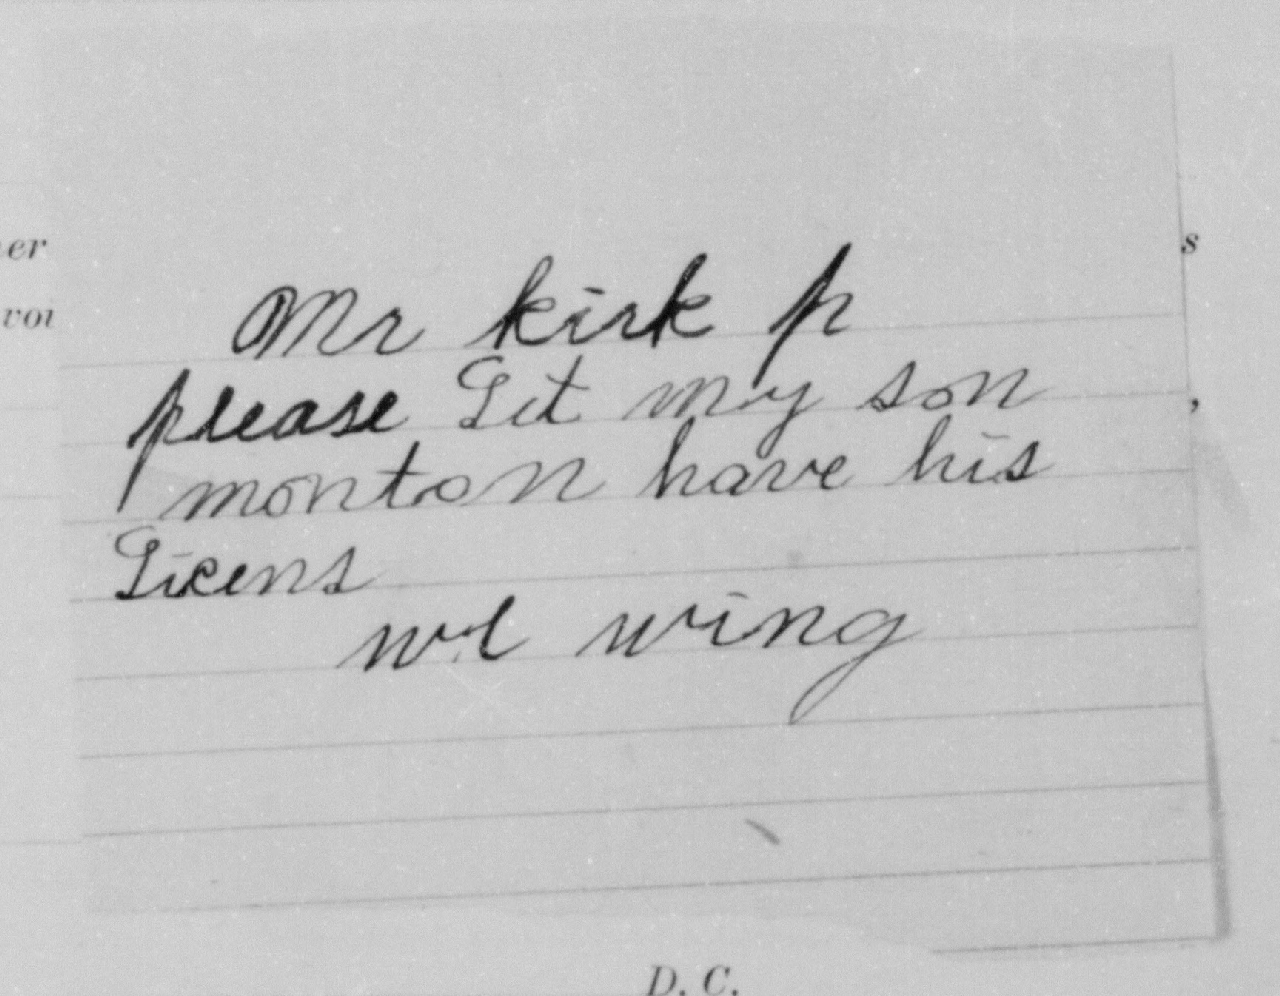 er
s
Mr kirk p
vou
please Let my son
,
monton have his
Licens
w.l wing
D. C.